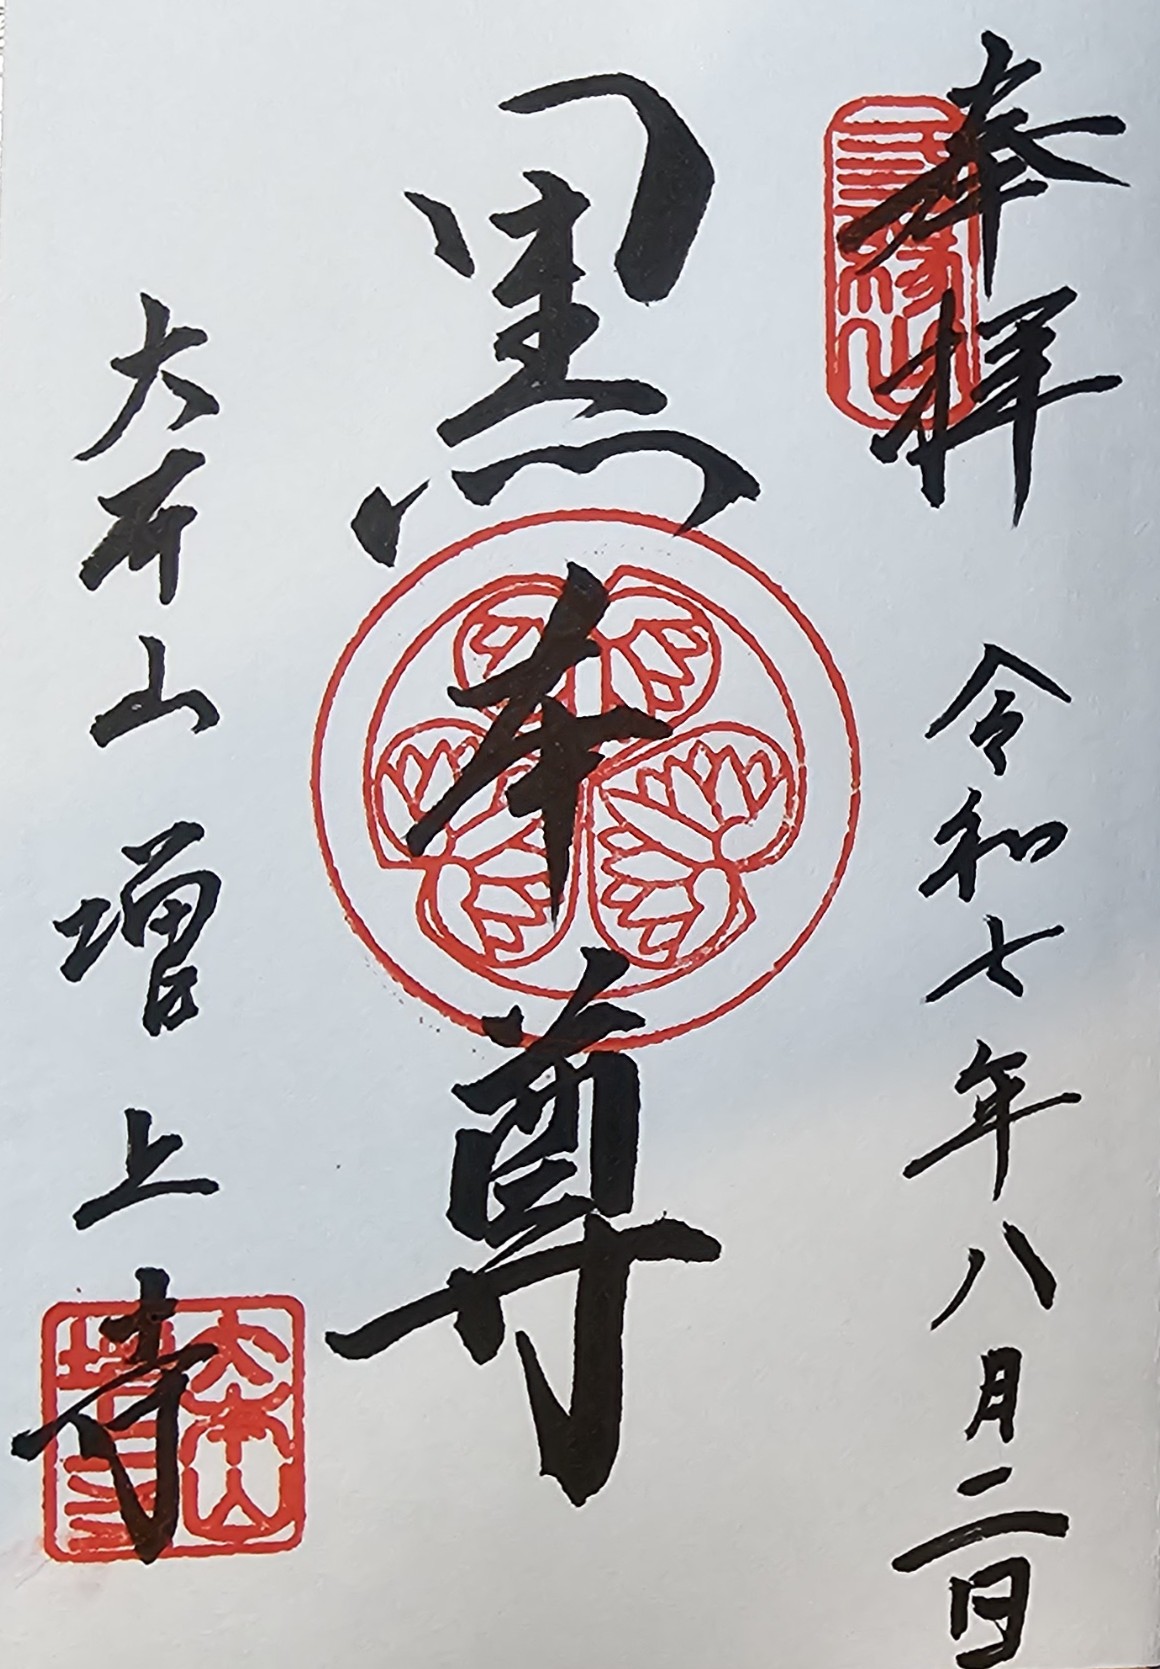 奉拝
令和七年八月二日
三縁山
黒本尊
大本山増上寺
大本山
増上寺